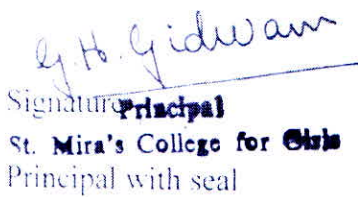 G.H. Gidwani
Signature
Principal
St. Mira's College for Girls
Principal with seal